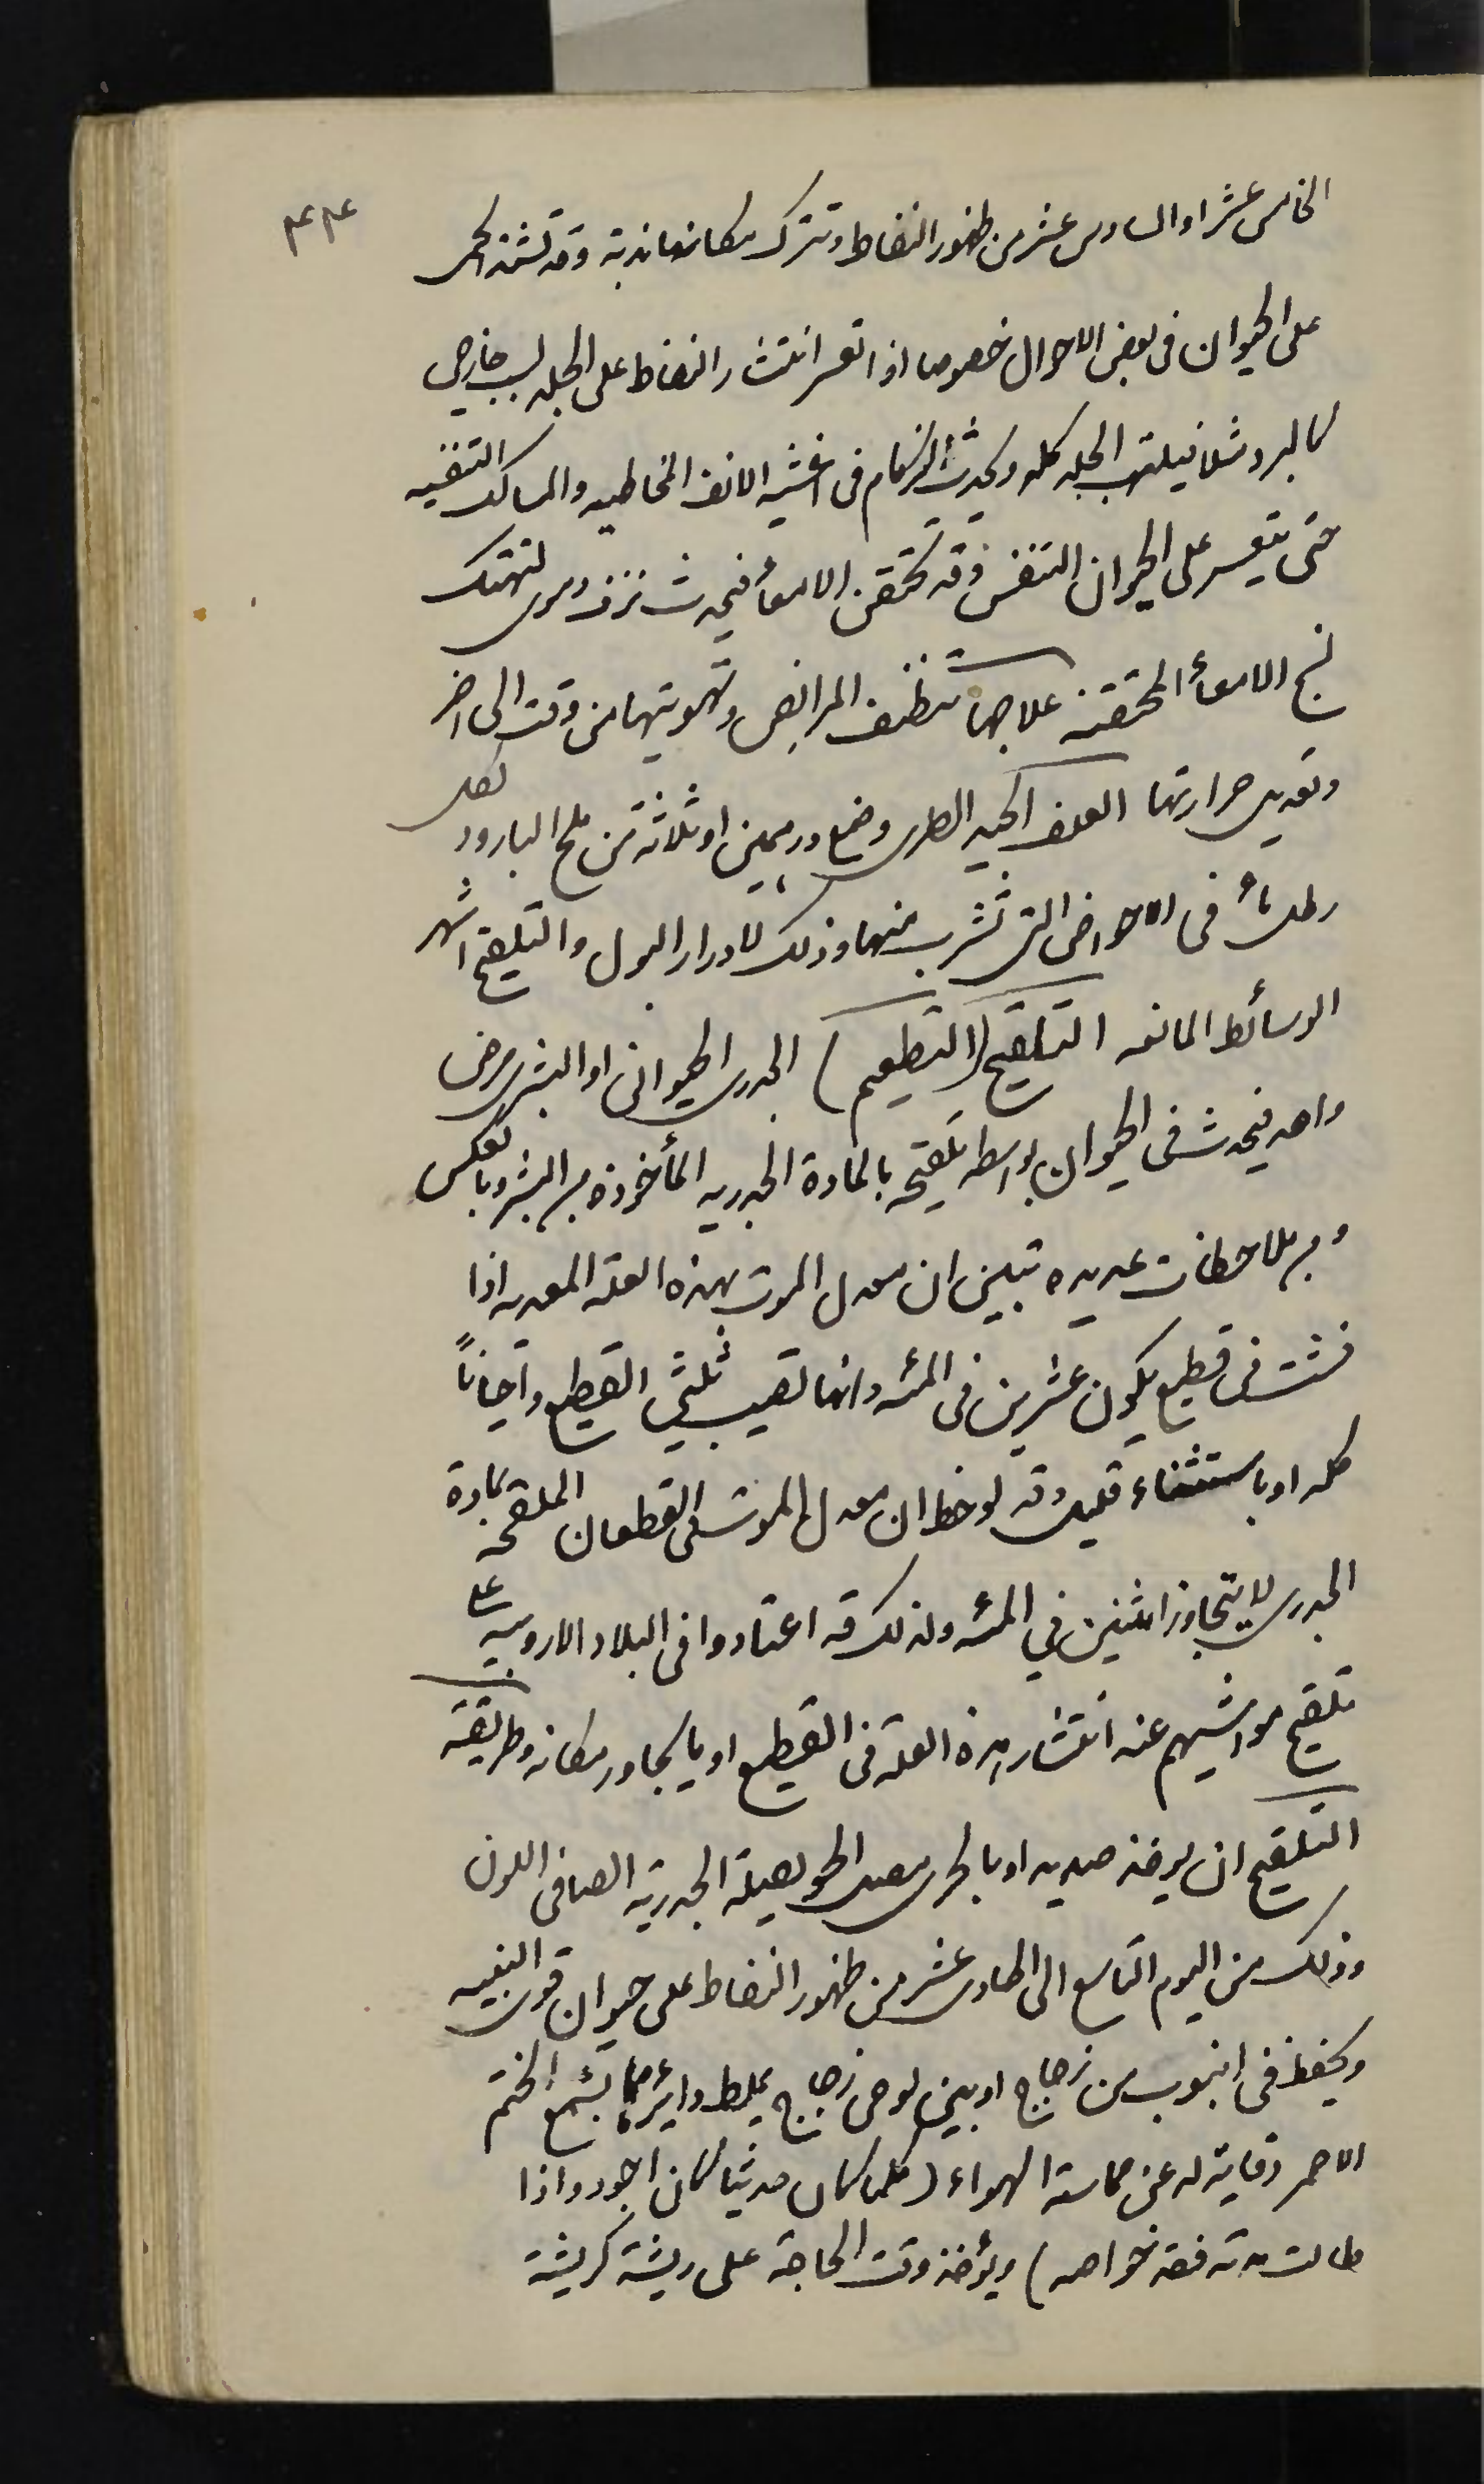 ٤٣٤
الخامس عشر او السادس عشر من ظهور النفاط وتترك مكانها ندبة وقد تشتد الحمى
على الحيوان فى بعض الاحوال خصوصا اذا تعسر انتشار النفاط على الجلد لسبب خارجى
كالبرد مثلا فيلتهب الجلد كله ويحدث الزكام فى اغشية الانف المخاطيه والمسالك التنفسيه
حتى يتعسر على الحيوان التنفس وقد تحتقن الامعأ فيحدث نزف دموى لتهتك
نسج الامعأ المحتقنه علاجها تنظيف المرابض وتهويتها من وقت الى اخر
وتعديل حرارتها العلف الجيد الطرى وضع درهمين او ثلاثة من ملح البارود لكل
رطل مأ فى الاحواض التى تشرب منها وذلك لادرار البول والتلقيح اشهر
الوسائط المانعه التلقيح (التطعيم) الجدرى الحيوانى او البشرى مرض
واحد فيحدث فى الحيوان بواسطه تلقيحه بالمادة الجدريه المأخوذة من البشر وبالعكس
ومن ملاحظات عديده تبين ان معدل الموت بهذه العلة المعديه اذا
فشت فى قطيع يكون عشرين فى المئه وانها تصيب ثلثي القطيع واحياناً
كله او باستثناء قليل وقد لوحظ ان معدل الموت فى القطعان الملقحه بمادة
الجدرى لا يتجاوز اثنين في المئه ولذلك قد اعتادوا فى البلاد الاروبيه على
تلقيح مواشيهم عند انتشار هذه العلة فى القطيع او ما يجاور مكانه وطريقة
التلقيح ان يوخذ صديد او بالحرى مصل الحويصلة الجدرية الصافى اللون
وذلك من اليوم التاسع الى الحادى عشر من ظهور النفاط على حيوان قوى البنيه
ويحفظ فى انبوب من زجاج او بين لوحى زجاج يملط دائرهما بشمع الختم
الاحمر وقاية له عن مماسة الهواء (كلما كان حديثا كان اجود واذا
طالت مدته فقد خواصه) ويؤخذ وقت الحاجة على ريشة كريشة